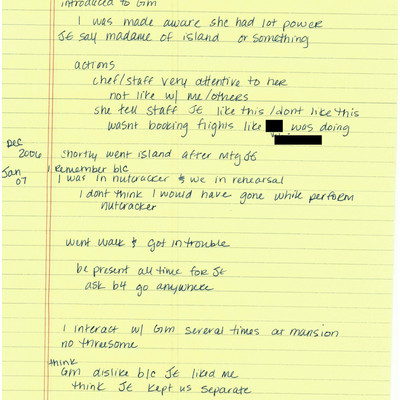 introduced to GM
I was made aware she had lot power
JE say madame of island or something
actions
chef/staff very attentive to her
not like w/ me/others
she tell staff JE like this/dont like this
wasnt booking flights like was doing
Dec 2006 shortly went island after mtg JE
Jan 07 I remember b/c
I was in nutcracker & we in rehearsal
I dont think I would have gone while perform
nutcracker
went walk & got in trouble
be present all time for JE
ask b4 go anywhere
I interact w/ GM several times at mansion
no threesome
think
GM dislike b/c JE liked me
think JE kept us separate